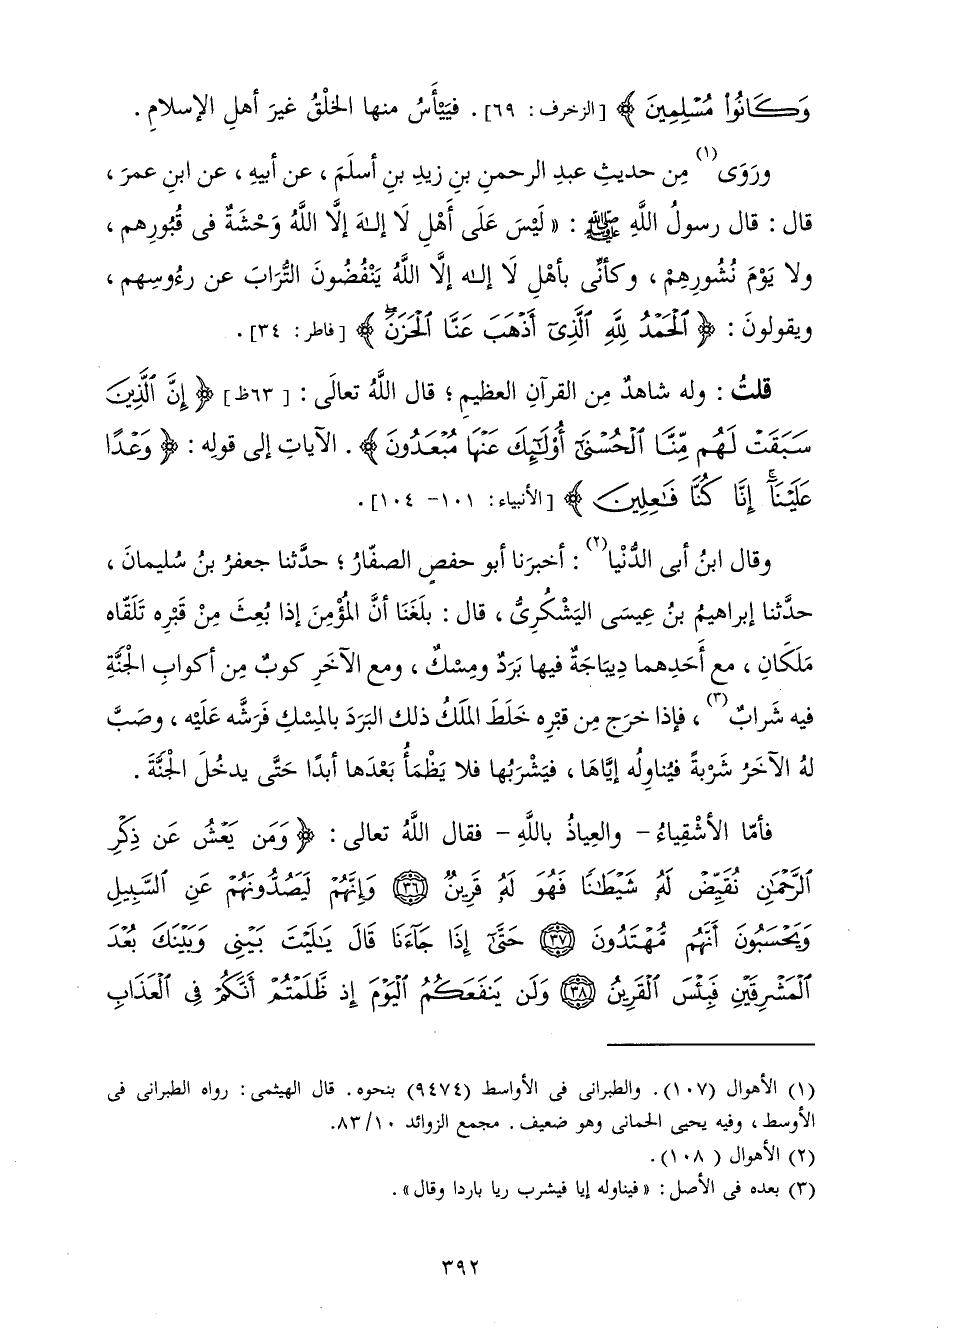 وَكَانُوا۟ مُسْلِمِينَ ﴾ [الزخرف: ٦٩]. فيَيْأَسُ منها الخلْقُ غيرَ أهلِ الإسلامِ.
ورَوَى(١) مِن حديثِ عبدِ الرحمنِ بنِ زيدِ بنِ أسلَمَ، عن أبيهِ، عن ابنِ عمرَ،
قال: قال رسولُ اللَّهِ ﷺ: «لَيْسَ عَلَى أَهْلِ لَا إِلـٰهَ إلَّا اللَّهُ وَحْشَةٌ فى قُبُورِهم،
ولا يَوْمَ نُشُورِهِمْ، وكأنِّى بأهْلِ لَا إلـٰه إلَّا اللَّهُ يَنْفُضُونَ التُّرَابَ عن رءُوسِهم،
ويقولونَ: ﴿ ٱلْحَمْدُ لِلَّهِ ٱلَّذِىٓ أَذْهَبَ عَنَّا ٱلْحَزَنَۖ ﴾ [فاطر: ٣٤].
قلتُ: وله شاهدٌ مِن القرآنِ العظيمِ؛ قال اللَّهُ تعالَى: [٦٣ظ] ﴿ إِنَّ ٱلَّذِينَ
سَبَقَتْ لَهُم مِّنَّا ٱلْحُسْنَىٰٓ أُو۟لَـٰٓئِكَ عَنْهَا مُبْعَدُونَ ﴾. الآياتِ إلى قولِه: ﴿ وَعْدًا
عَلَيْنَآۚ إِنَّا كُنَّا فَـٰعِلِينَ ﴾ [الأنبياء: ١٠١- ١٠٤].
وقال ابنُ أبى الدُّنْيا(٢): أخبرَنا أبو حفصٍ الصفّارُ؛ حدَّثنا جعفرُ بنُ سُليمانَ،
حدَّثنا إبراهيمُ بنُ عِيسَى اليَشْكُرِىُّ، قال: بلَغَنَا أنَّ المُؤْمِنَ إذا بُعِثَ مِنْ قَبْرِه تَلَقّاه
مَلَكَانِ، مع أَحَدِهما دِيبَاجَةٌ فيها بَرَدٌ ومِسْكٌ، ومع الآخَرِ كوبٌ مِن أكوابِ الجَنَّةِ
فيه شَرابٌ(٣)، فإذا خرَج مِن قبْرِه خَلَطَ المَلَكُ ذلك البَرَدَ بالمِسْكِ فَرَشَّه عَلَيْه، وصَبَّ
لهُ الآخَرُ شَرْبَةً فيُناوِلُه إيَّاهَا، فيَشْرَبُها فلا يَظْمَأُ بَعْدَها أبدًا حَتَّى يدخُلَ الجَنَّةَ.
فأمّا الأشْقِياءُ- والعِياذُ باللَّهِ- فقال اللَّهُ تعالى: ﴿ وَمَن يَعْشُ عَن ذِكْرِ
ٱلرَّحْمَـٰنِ نُقَيِّضْ لَهُۥ شَيْطَـٰنًا فَهُوَ لَهُۥ قَرِينٌ ٣٦ وَإِنَّهُمْ لَيَصُدُّونَهُمْ عَنِ ٱلسَّبِيلِ
وَيَحْسَبُونَ أَنَّهُم مُّهْتَدُونَ ٣٧ حَتَّىٰٓ إِذَا جَآءَنَا قَالَ يَـٰلَيْتَ بَيْنِى وَبَيْنَكَ بُعْدَ
ٱلْمَشْرِقَيْنِ فَبِئْسَ ٱلْقَرِينُ ٣٨ وَلَن يَنفَعَكُمُ ٱلْيَوْمَ إِذ ظَّلَمْتُمْ أَنَّكُمْ فِى ٱلْعَذَابِ
(١) الأهوال (١٠٧). والطبرانى فى الأواسط (٩٤٧٤) بنحوه. قال الهيثمى: رواه الطبرانى فى
الأوسط، وفيه يحيى الحمانى وهو ضعيف. مجمع الزوائد ١٠/ ٨٣.
(٢) الأهوال ( ١٠٨).
(٣) بعده فى الأصل: «فيناوله إيا فيشرب ريا باردا وقال».
٣٩٢